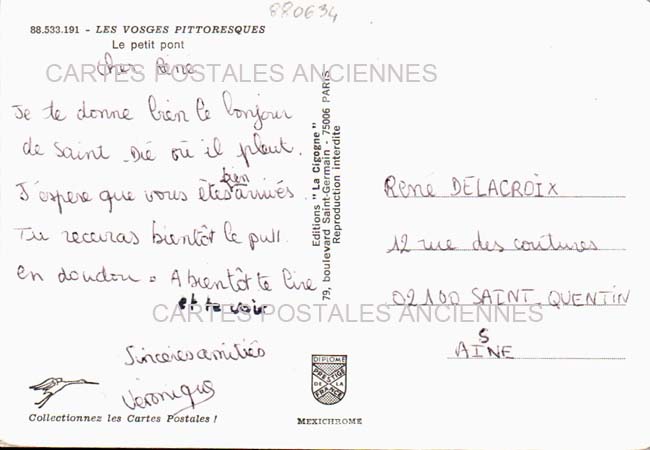 880634
88.533.191 - LES VOSGES PITTORESQUES
Le petit pont
CARTES POSTALES ANCIENNES
Cher Réné
Je te donne bien le bonjour
de Saint Dié où il pleut.
J'éspere que vous êtes bien arrivés.
Tu recevras bientôt le pull
en doudou. A bientôt te lire
et te voir
Sincères amitiés
Véronique
Collectionnez les Cartes Postales !
Editions "La Cigogne"
79, boulevard Saint-Germain - 75006 PARIS
Reproduction interdite
DIPLOME
PRESTIGE
DE LA
FRANCE
MEXICHROME
René DELACROIX
12 rue des coutures
02100 SAINT-QUENTIN
AISNE
CARTES POSTALES ANCIENNES